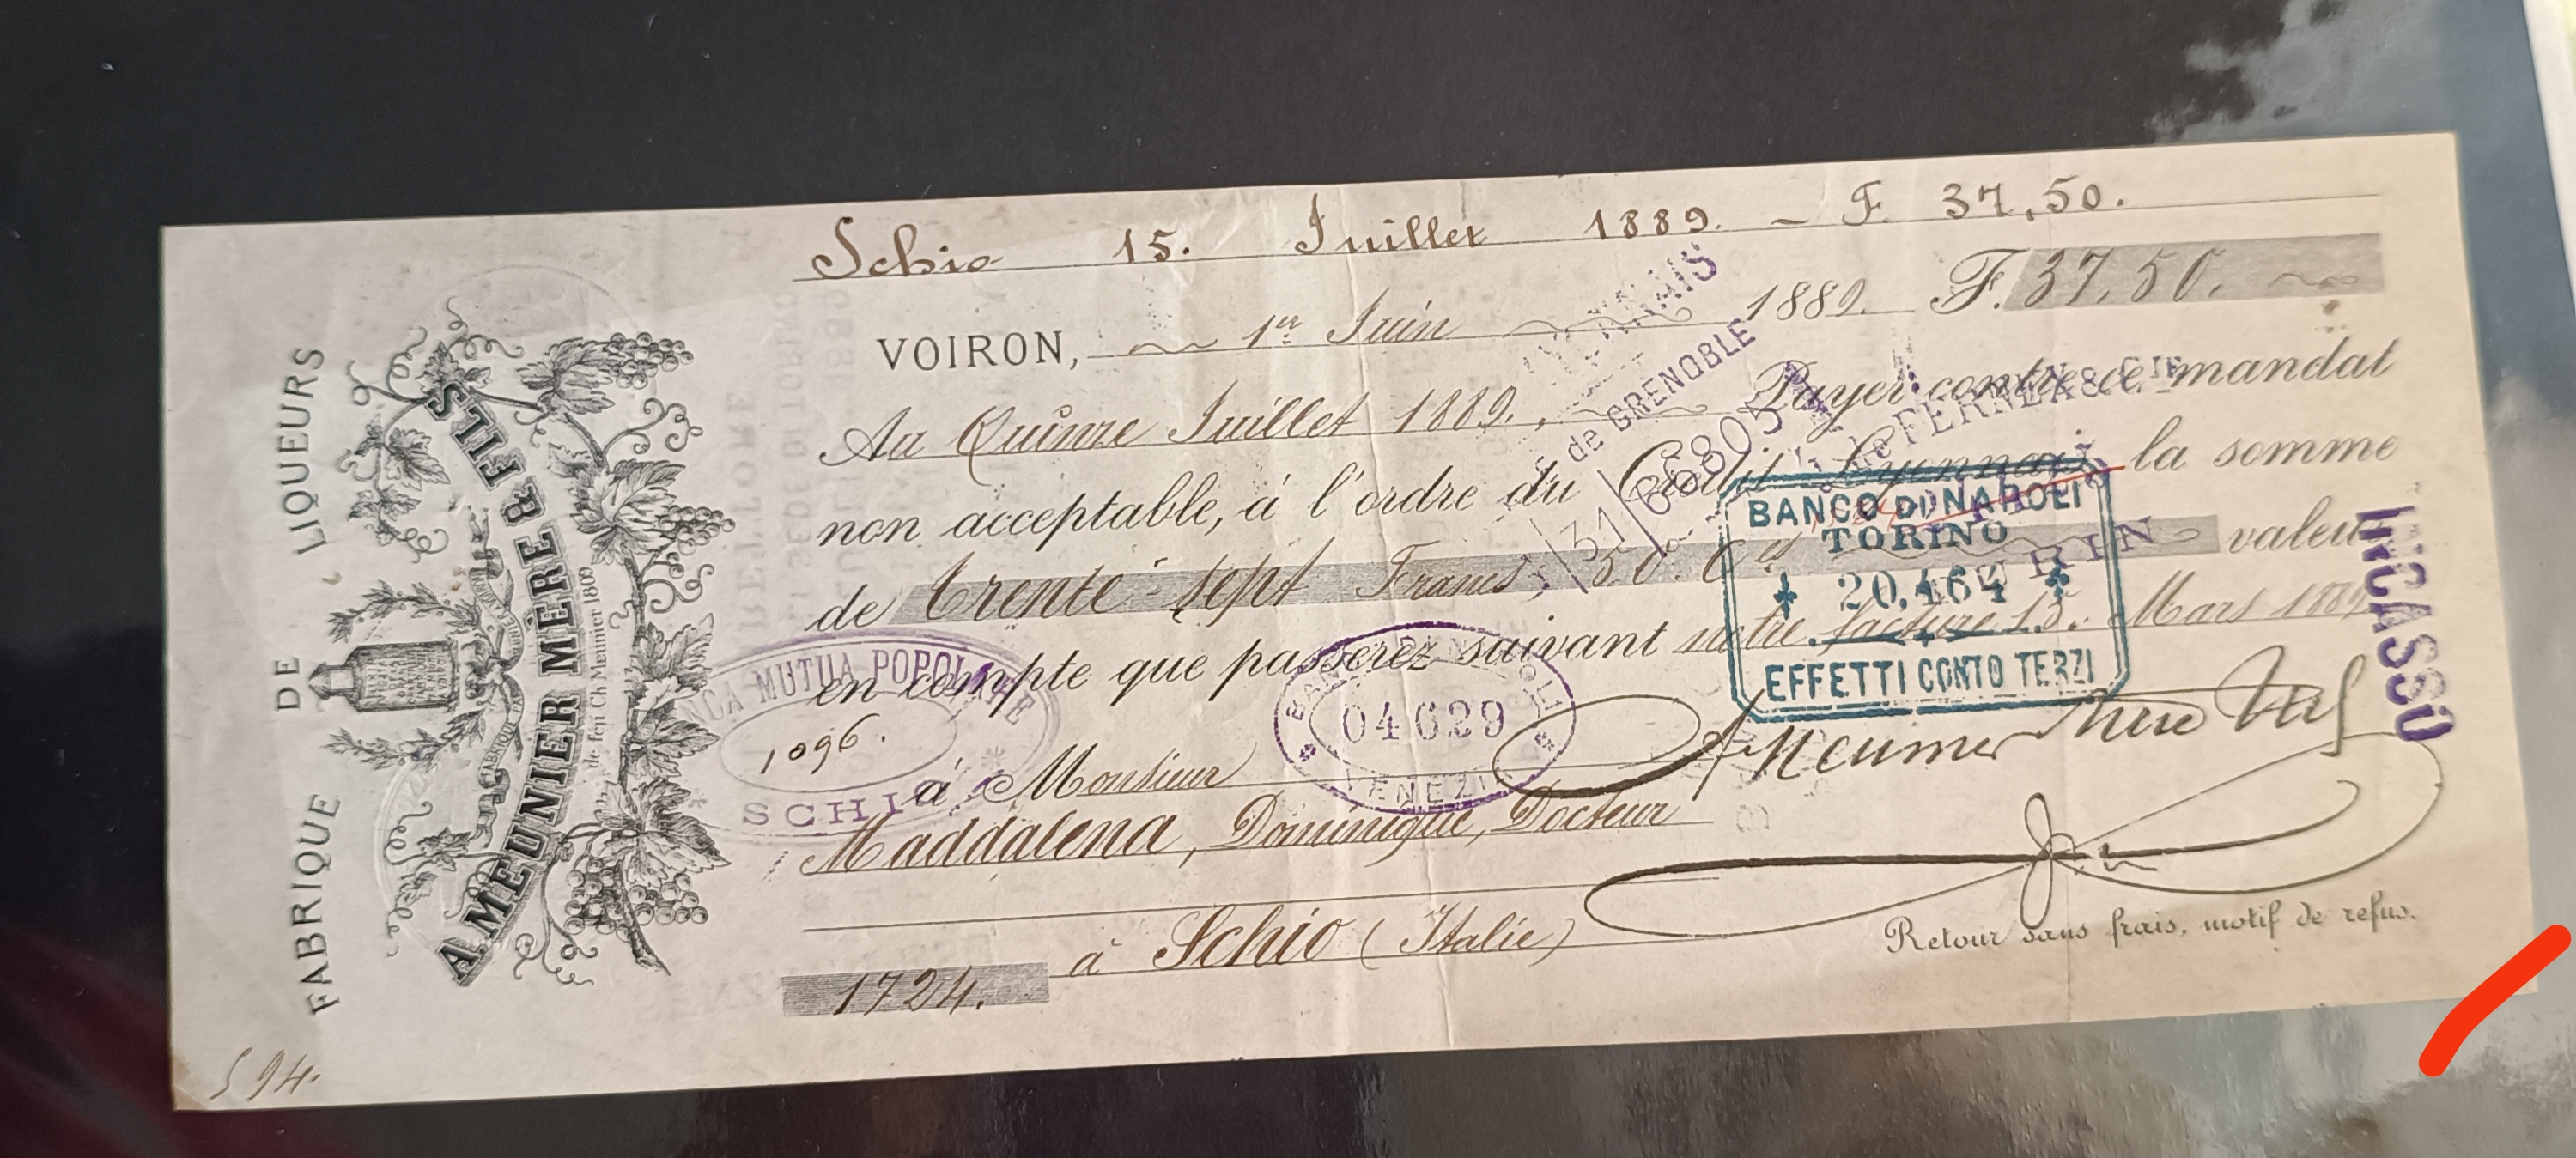 Schio 15. Juillet 1889. - F. 37,50.
VOIRON, 1er Juin 1889. F. 37,50.
Au Quinze Juillet 1889, Payer contre ce mandat
non acceptable, à l'ordre du Crédit Lyonnais la somme
de Trente-sept Francs, 50. Ces valeur
en compte que passerez suivant notre facture 15. Mars 1889
à Monsieur
Maddalena, Dominique, Docteur
à Schio (Italie)
1724.
A Meunier Mère & Fils
Retour sans frais, motif de refus.
FABRIQUE DE LIQUEURS
A. MEUNIER MÈRE & FILS
de feu Ch Meunier 1809
BANCA MUTUA POPOLARE
1096.
SCHIO
04629
VENEZIA
de GRENOBLE
66805
de FERNEX & Cie
TURIN
BANCO DI NAPOLI
TORINO
20,464
EFFETTI CONTO TERZI
INCASSO
594.